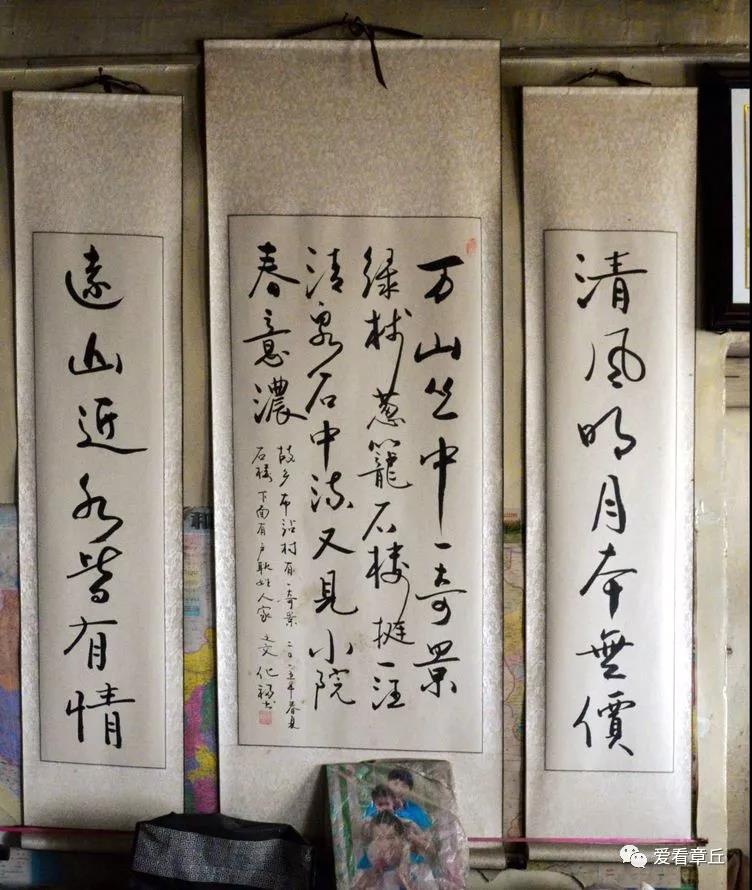 清风明月本無價
万山丛中一奇景
绿树葱籠石楼挺一汪
清泉石中流又见小院
春意濃
故乡村有一奇景二〇一五年春
石楼下面有户耿姓人家文化
遠山近水皆有情
爱看章丘